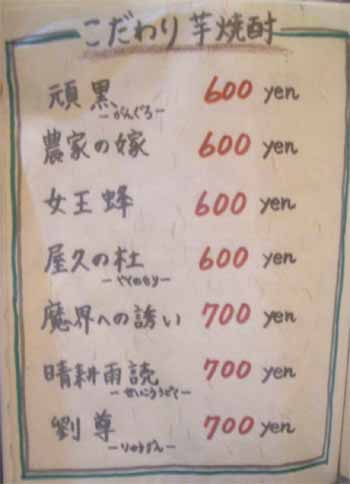 こだわり芋焼酎
頑黒 600 yen
ーがんぐろー
農家の嫁 600 yen
女王蜂 600 yen
屋久の杜 600 yen
ーやくのもりー
魔界への誘い 700 yen
晴耕雨読 700 yen
ーせいこううどくー
劉尊 700 yen
ーりゅうずんー